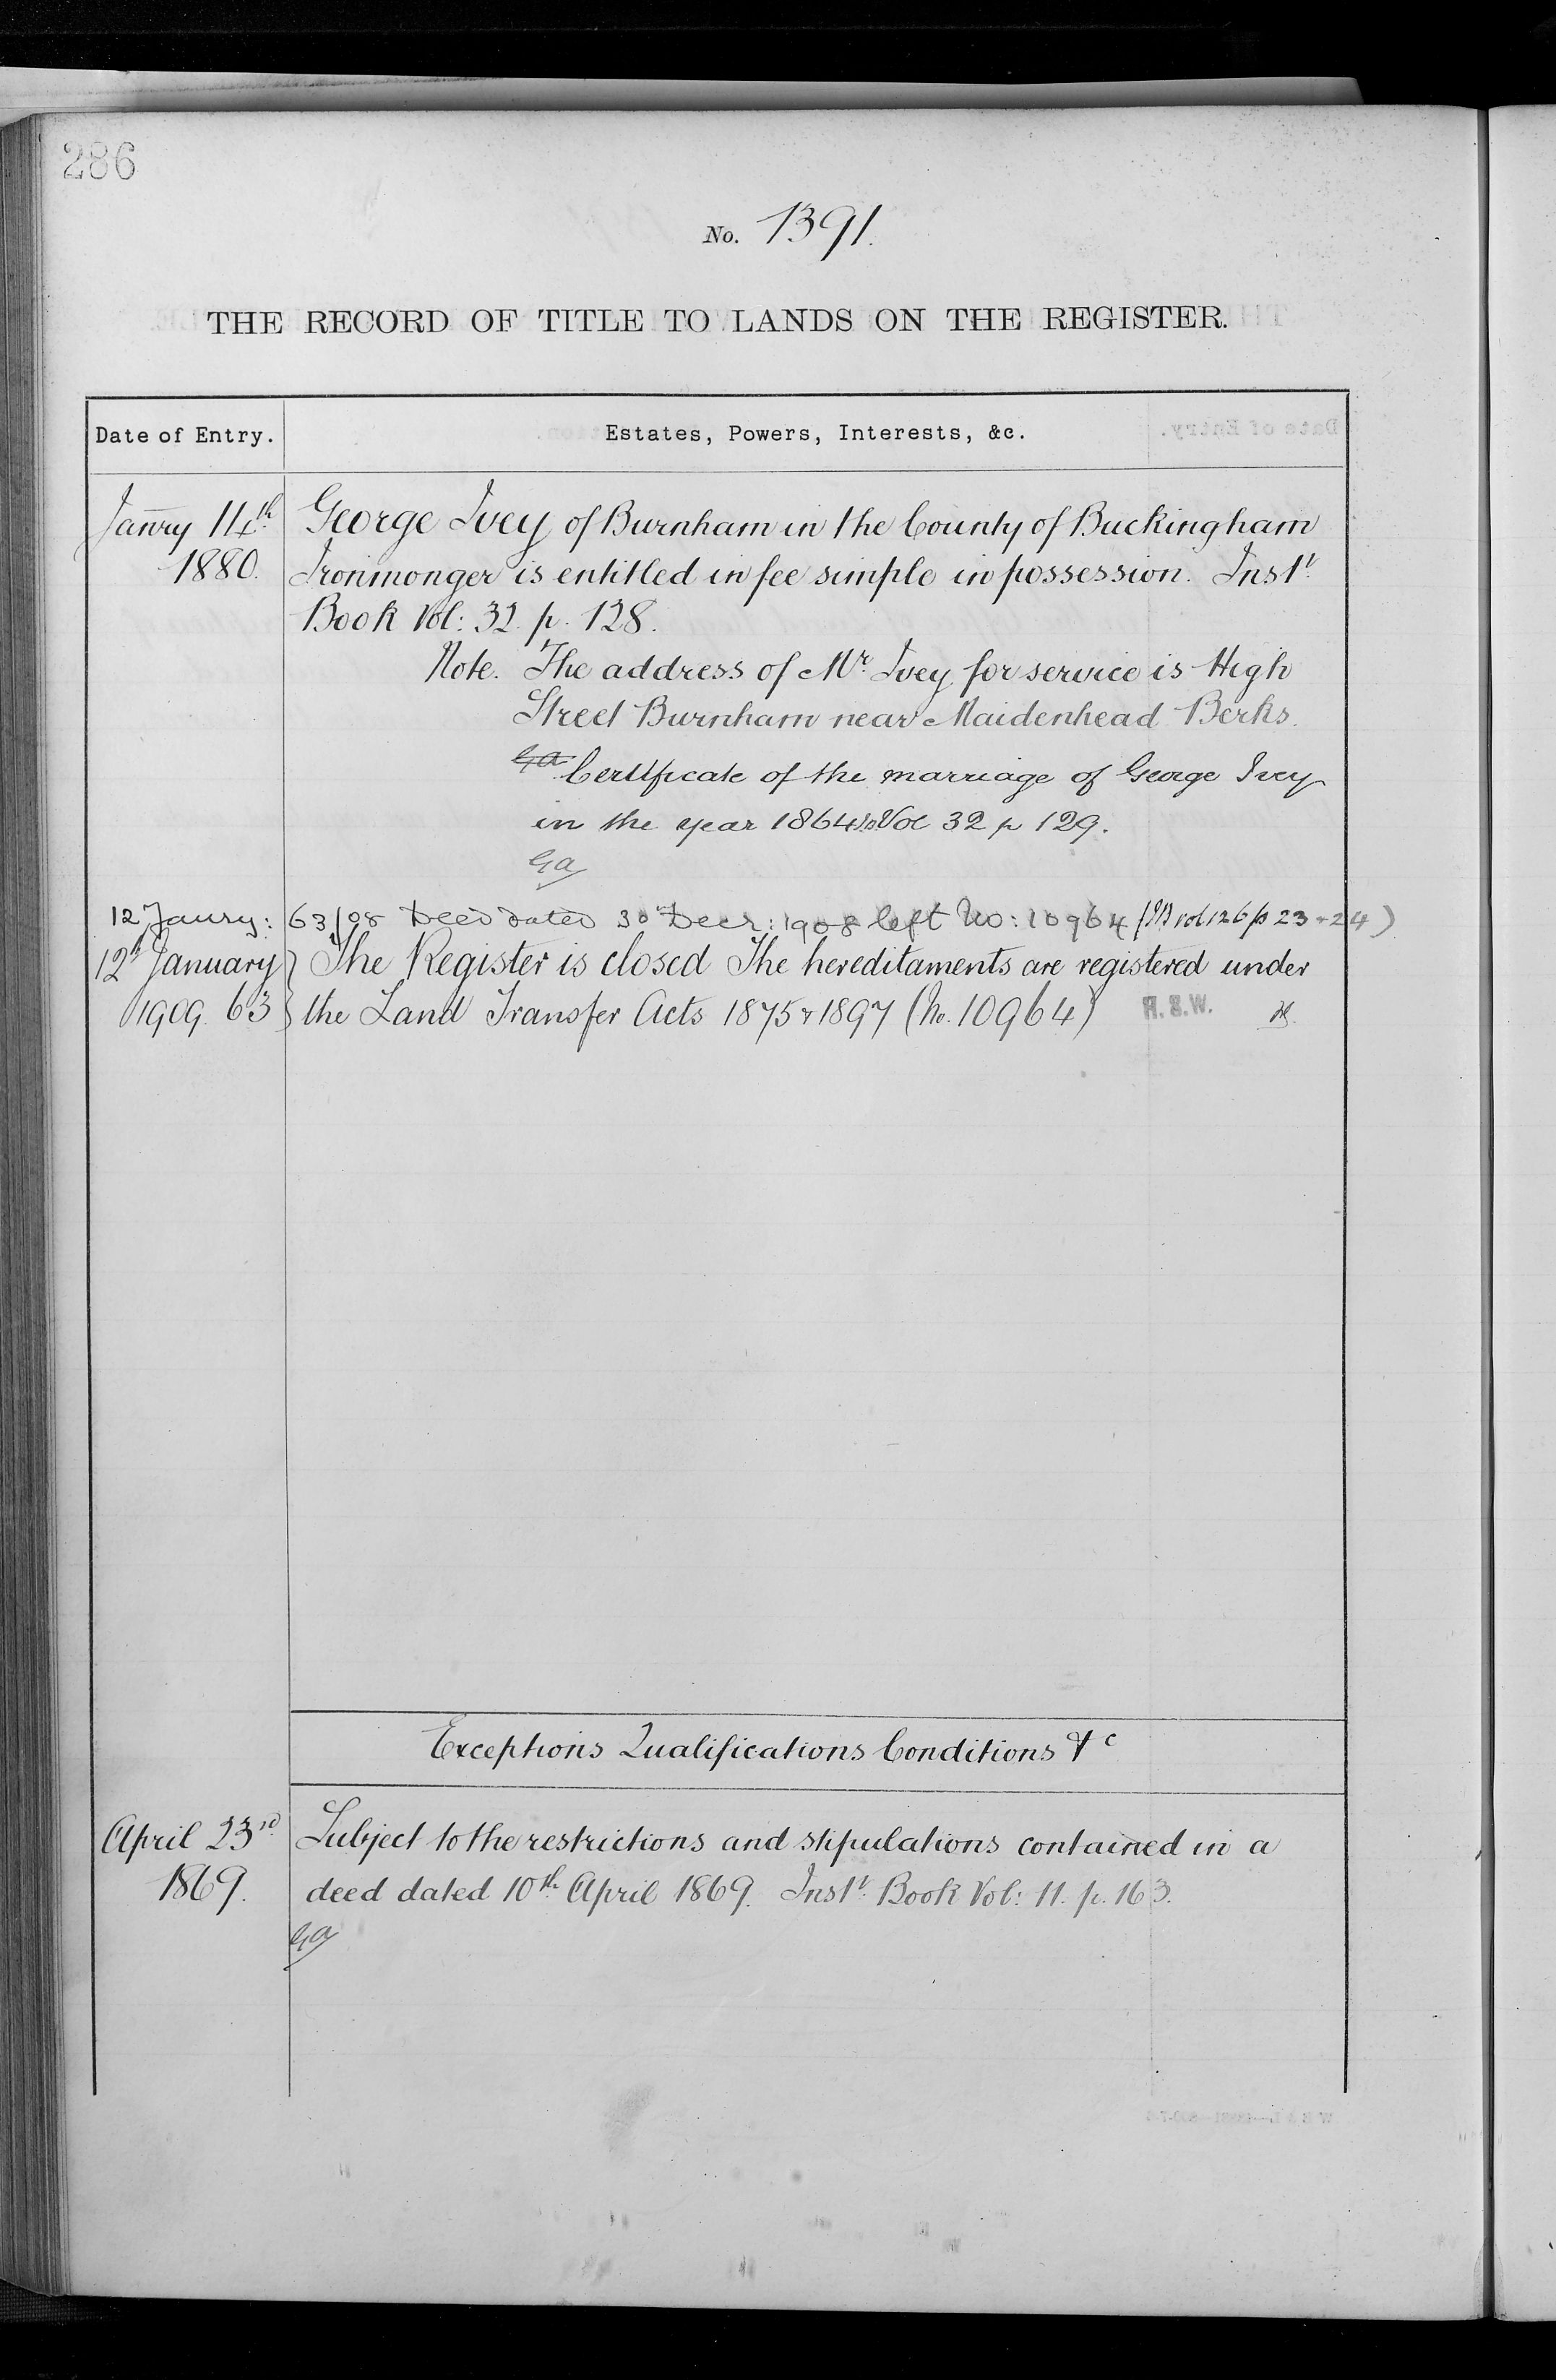 286
No. 1391.
THE RECORD OF TITLE TO LANDS ON THE REGISTER.
Date of Entry.
Estates, Powers, Interests, &c.
Janry 14th George Ivey of Burnham in the County of Buckingham
1880. Ironmonger is entitled in fee simple in possession. Inst.
Book Vol: 32. p. 128.
Note. The address of Mr. Ivey for service is High
Street Burnham near Maidenhead Berks.
Certificate of the marriage of George Ivey
in the year 1864 Vol 32 p 129.
GA
12 Janry: 63/08 Deed dated 30th Decr: 1908 left No: 10964 (IB vol 126 p 23 + 24)
12th January } The Register is closed The hereditaments are registered under
1909. 63 } the Land Transfer Acts 1875 & 1897 (No. 10964) H.S.W.
Exceptions Qualifications Conditions &c
April 23rd Subject to the restrictions and stipulations contained in a
1869. deed dated 10th April 1869. Inst. Book Vol: 11. p. 163.
GA